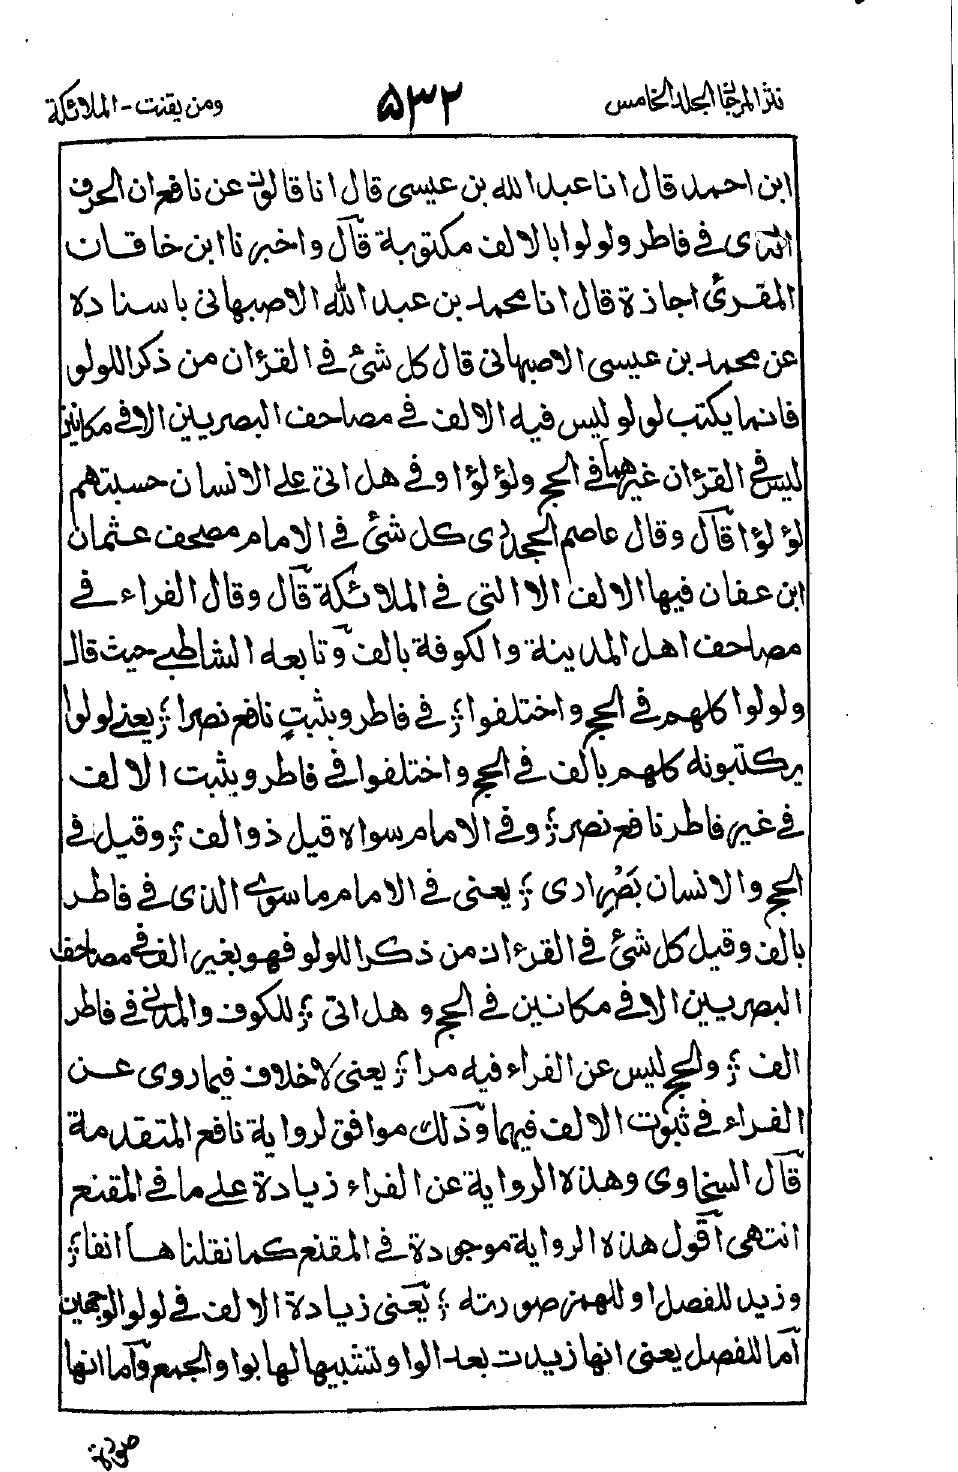 نثر المرجان المجلد الخامس
۵۳۲
ومن يقنت - الملائكة
ابن احمد قال انا عبد الله بن عيسى قال انا قالون عن نافع ان الحرف
الذى فى فاطر ولولوا بالالف مكتوبة قال واخبرنا ابن خاقان
المقرئ اجازة قال انا محمد بن عبد الله الاصبهانى باسناده
عن محمد بن عيسى الاصبهانى قال كل شئ فى القرءان من ذكر اللولو
فانما يكتب لولو ليس فيه الالف فى مصاحف البصريين الا فى مكانين
ليس فى القرءان غيرهما فى الحج ولؤلؤا وفى هل اتى على الانسان حسبتهم
لؤلؤا قال وقال عاصم الجحدرى كل شئ فى الامام مصحف عثمان
ابن عفان فيها الالف الا التى فى الملائكة قال وقال الفراء فى
مصاحف اهل المدينة والكوفة بالف وتابعه الشاطبى حيث قال
ولولوا كلهم فى الحج واختلفوا ۏ فى فاطر وبثبت نافع نصرا ۏ يعنى لولوا
يركتبونه كلهم بالف فى الحج واختلفوا فى فاطر وبثبت الالف
فى غير فاطر نافع نصر ۏ وفى الامام سواه قيل ذو الف ۏ وقيل فى
الحج والانسان بَصْرٍ ادى ۏ يعنى فى الامام ما سوى الذى فى فاطر
بالف وقيل كل شئ فى القرءان من ذكر اللولو فهو بغير الف فى مصاحف
البصريين الا فى مكانين فى الحج وهل اتى ۏ للكوف والمدنى فى فاطر
الف ۏ والحج ليس عن الفراء فيه مرا ۏ يعنى لا خلاف فيما روى عن
الفراء فى ثبوت الالف فيهما وذلك موافق لرواية نافع المتقدمة
قال السخاوى وهذه الرواية عن الفراء زيادة على ما فى المقنع
انتهى اقول هذه الرواية موجودة فى المقنع كما نقلناها انفا ۏ
وزيد للفصل او للهمز صورته ۏ يعنى زيادة الالف فى لولو الوجهين
اما للفصل يعنى انها زيدت بعد الواو لتشبيهها بواو الجمع واما انها
صورة